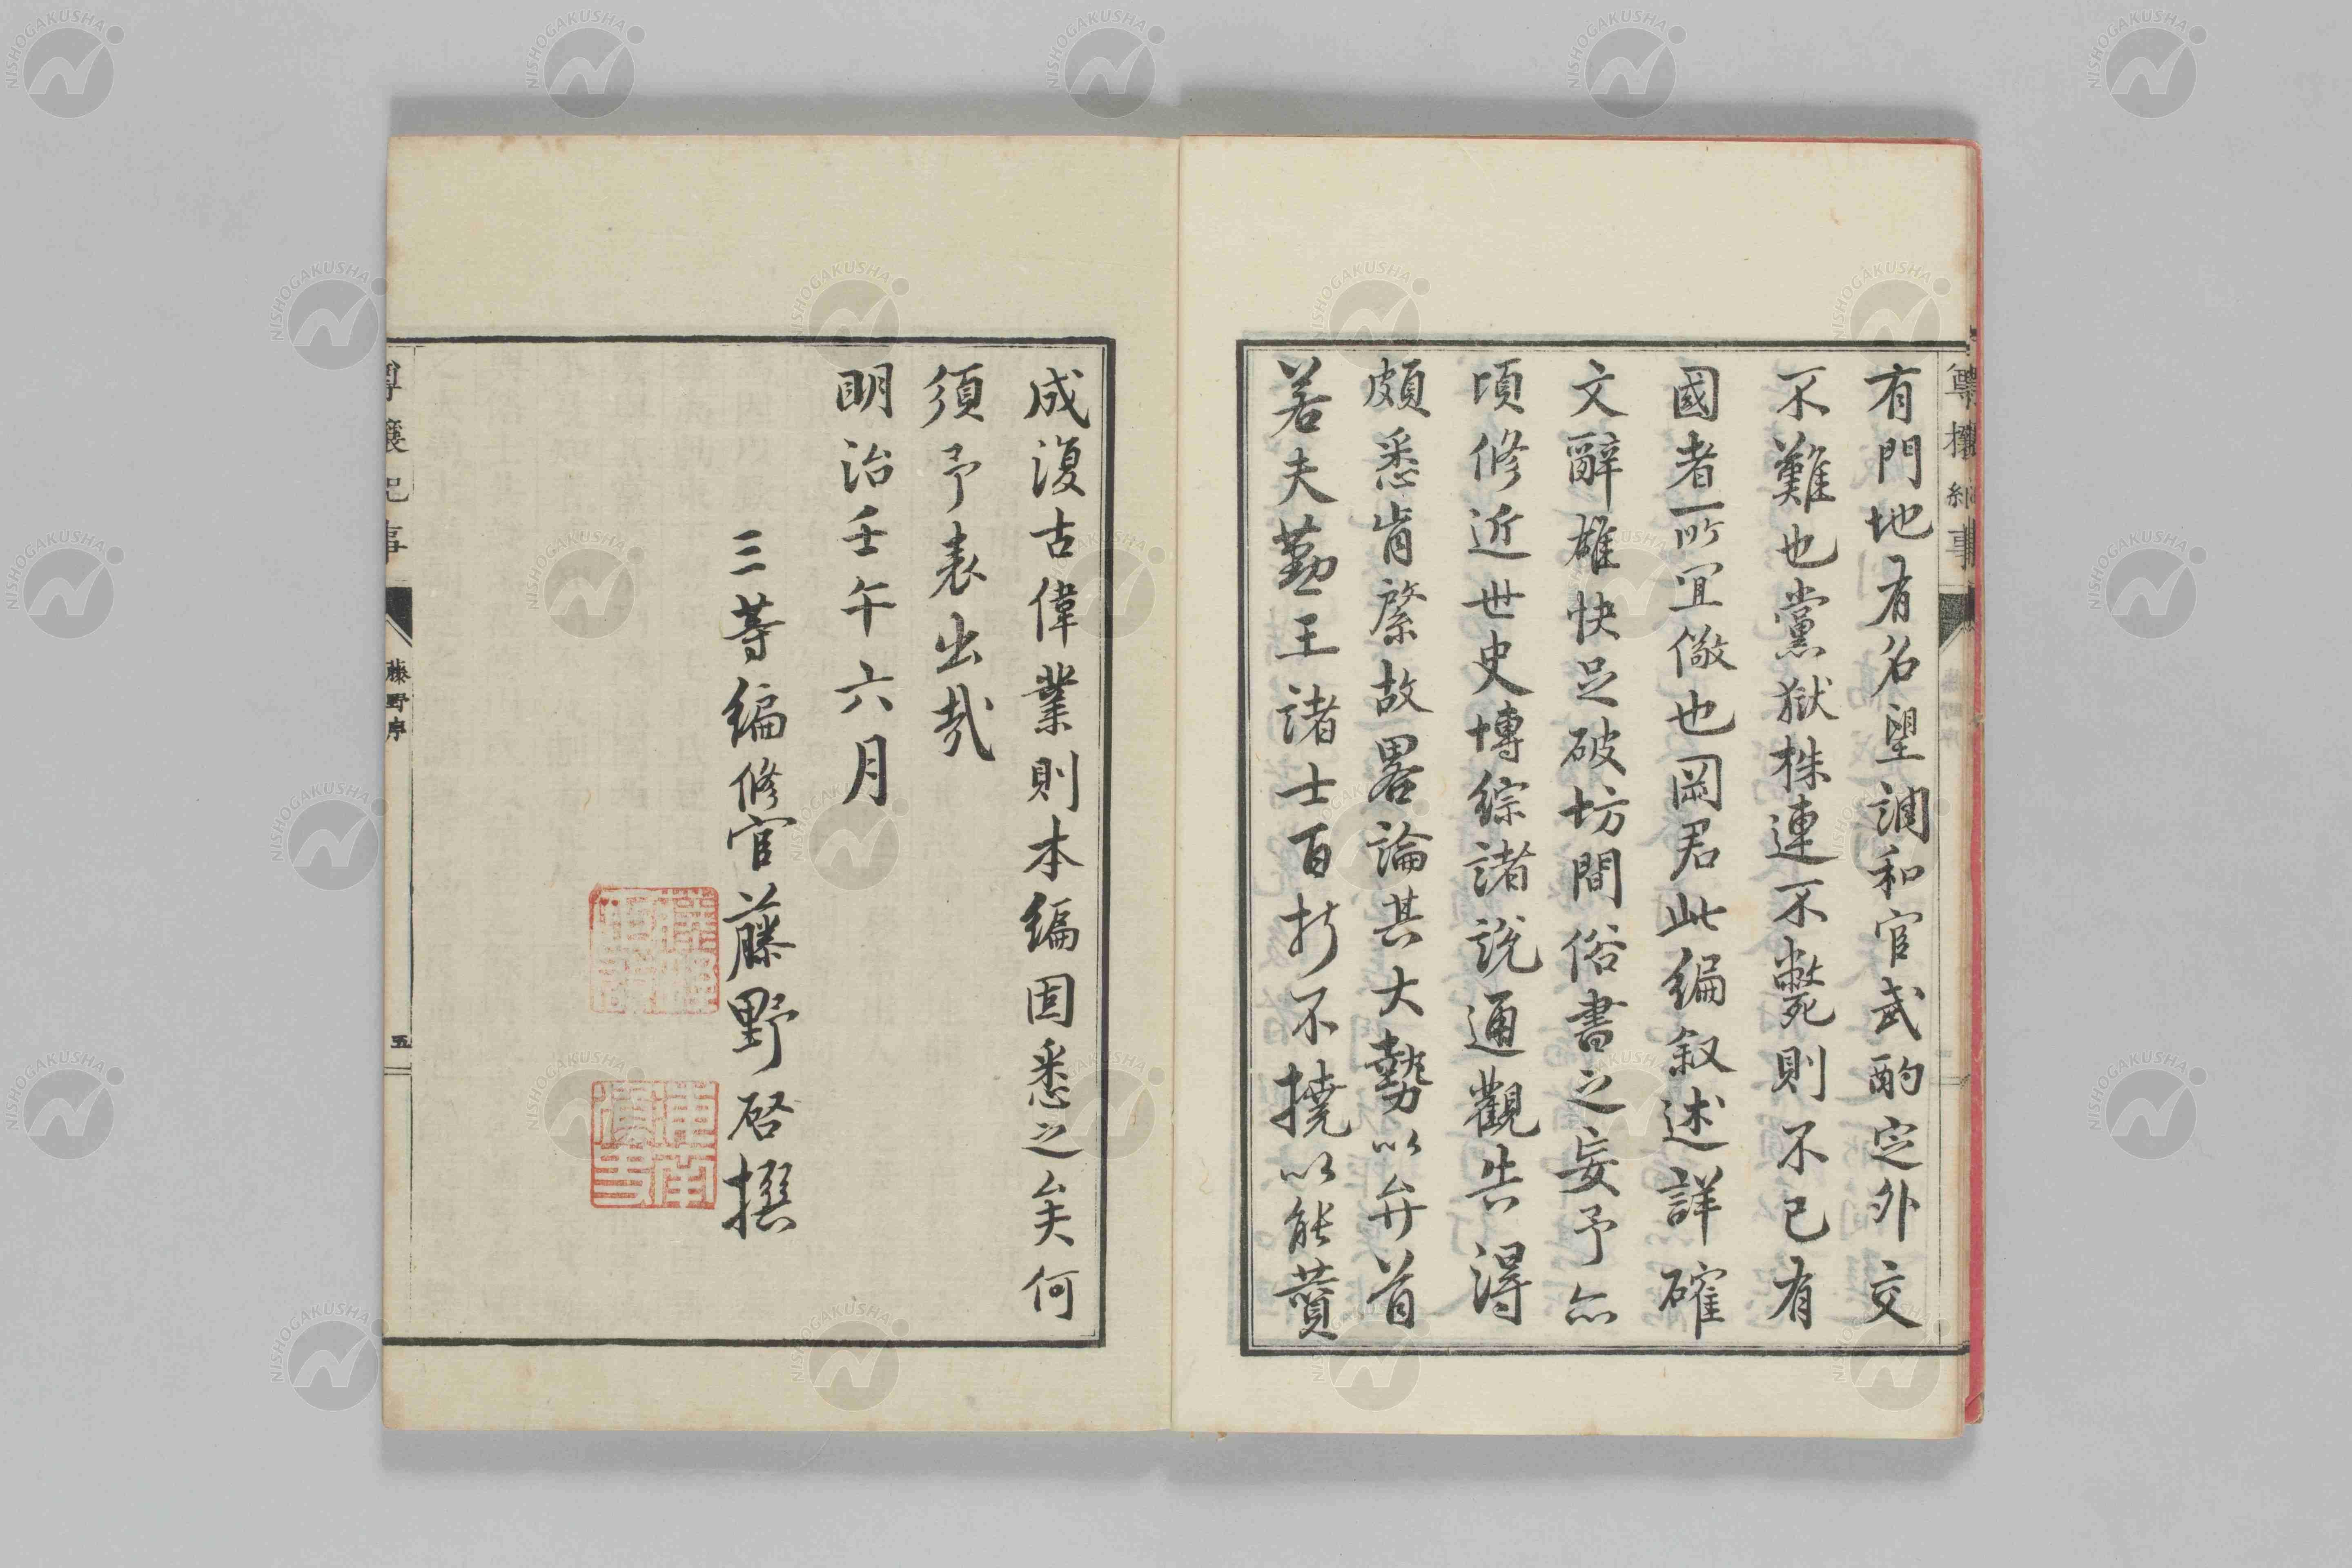 有門地有名望調和官武酌定外交
不難也黨獄株連不斃則不已有
國者所宜儆也岡君此編叙述詳確
文辭雄快足破坊間俗書之妄予亦
頃修近世史博綜諸説通觀告得
頗悉肯綮故畧論其大勢以弁首
若夫勤王諸士百折不撓以能賛
成復古偉業則本編固悉之矣何
須予表出哉
明治壬午六月
三等編修官藤野啓撰
尊攘紀事
藤野序
五
NISHOGAKUSHA